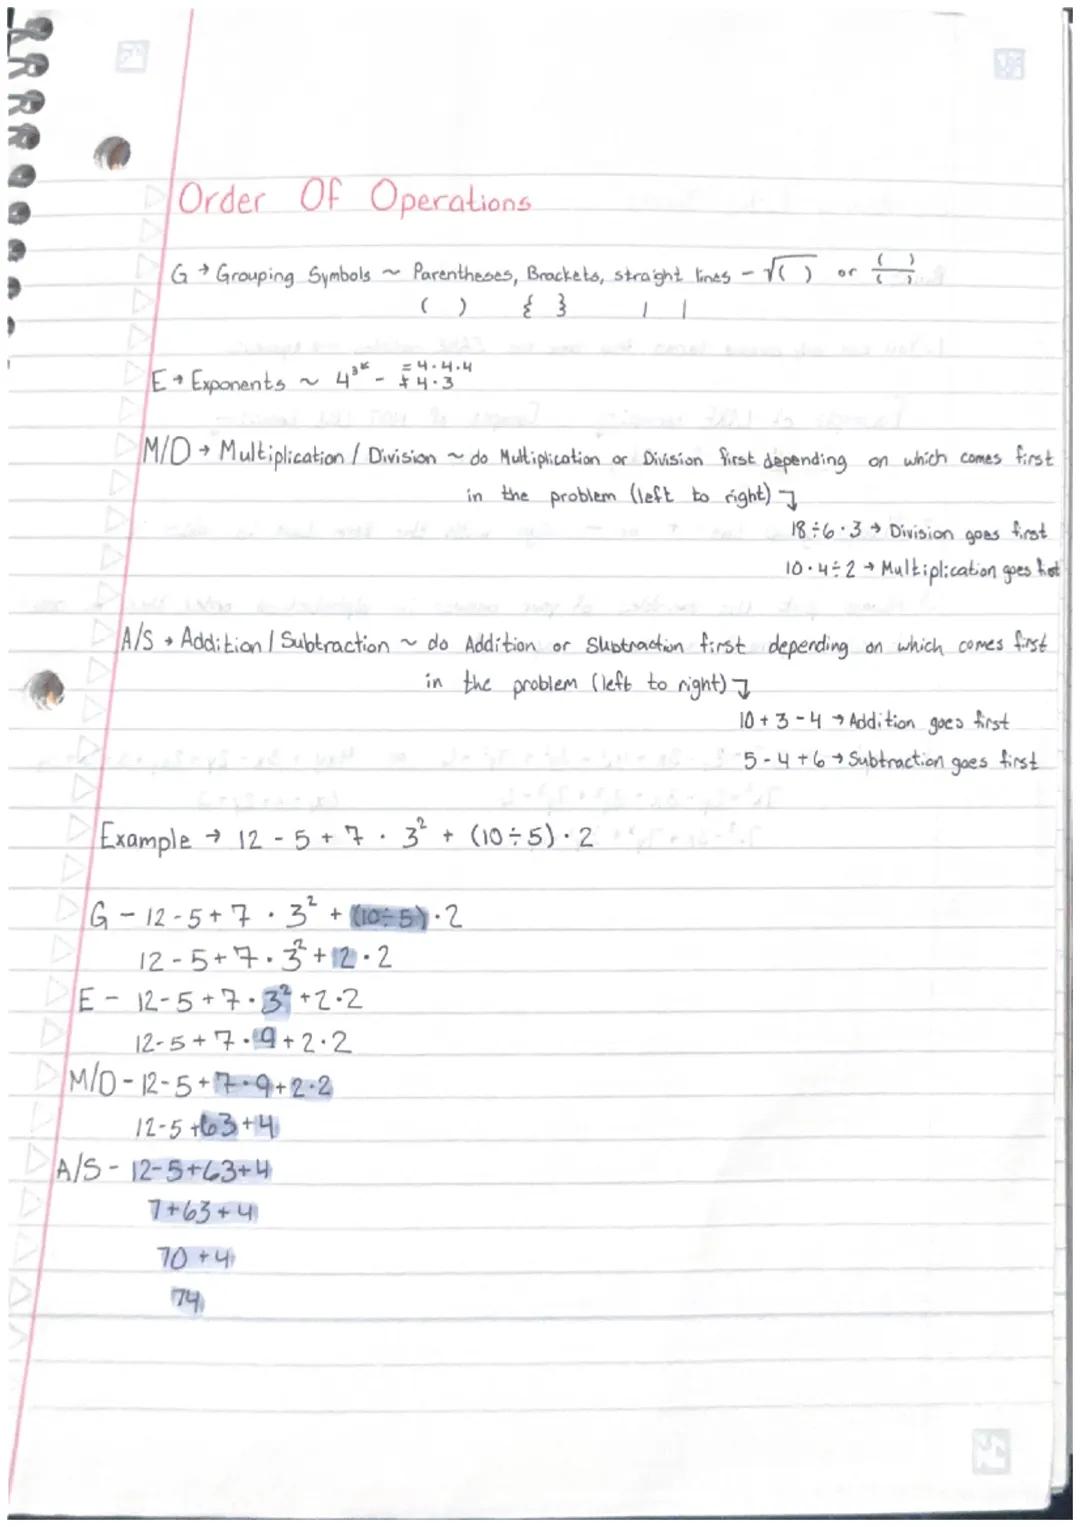 Order Of Operations
G → Grouping Symbols ~ Parentheses, Brackets, straight lines - √( ) or ( )/( )
( ) { } | |
E → Exponents ~ 4³ - = 4·4·4
≠ 4·3
M/D → Multiplication / Division ~ do Multiplication or Division first depending on which comes first
in the problem (left to right) ↴
18÷6·3 → Division goes first
10·4÷2 → Multiplication goes first
A/S → Addition / Subtraction ~ do Addition or Subtraction first depending on which comes first
in the problem (left to right) ↴
10 + 3 - 4 → Addition goes first
5 - 4 + 6 → Subtraction goes first
Example → 12 - 5 + 7 · 3² + (10÷5) · 2
G - 12 - 5 + 7 · 3² + (10÷5) · 2
12 - 5 + 7 · 3² + 2 · 2
E - 12 - 5 + 7 · 3² + 2 · 2
12 - 5 + 7 · 9 + 2 · 2
M/D - 12 - 5 + 7 · 9 + 2 · 2
12 - 5 + 63 + 4
A/S - 12 - 5 + 63 + 4
7 + 63 + 4
70 + 4
74